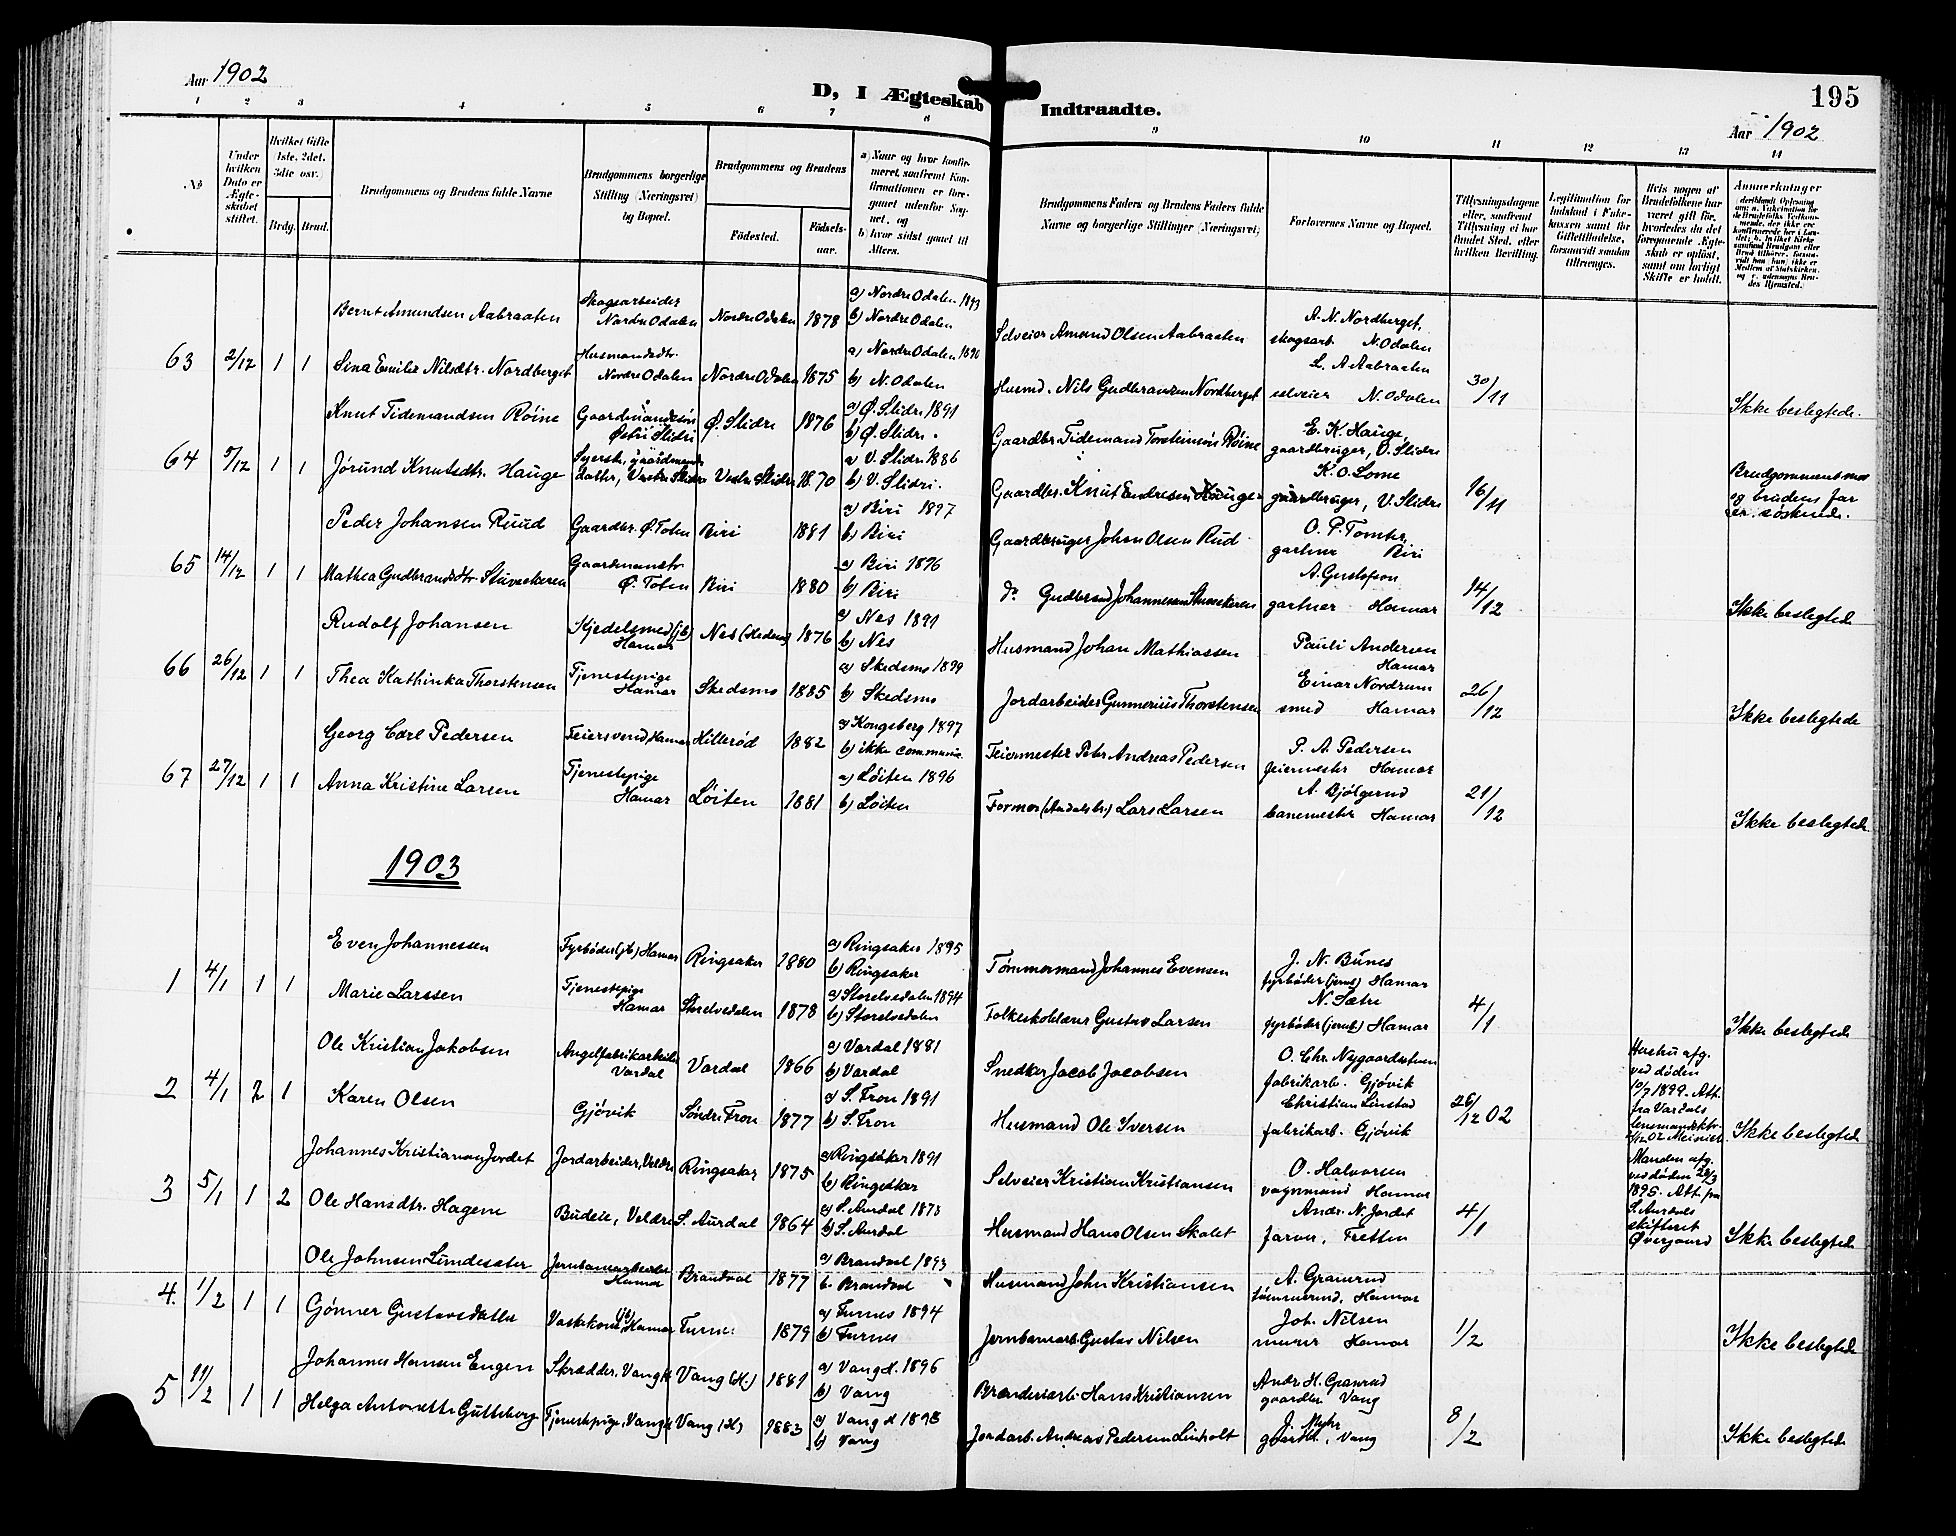 Aar 1902
D, I Ægteskab Indtraadte.
195
Aar 1902
1 2 3 4 5 6 7 8 9 10 11 12 13 14
No
Under hvilken Dato er Ægteskabet stiftet.
Hvilket Gifte (1ste, 2det, 3die osv.)
Brdg. Brud.
Brudgommens og Brudens fulde Navne
Brudgommens borgerlige Stilling (Næringsvei) og Bopæl.
Brudgommens og Brudens
Fødested.
Fødselsaar.
a) Naar og hvor konfirmeret, saafremt Konfirmationen er foregaaet udenfor Sognet, og
b) hvor sidst gaaet til Alters.
Brudgommens Faders og Brudens Faders fulde Navne og borgerlige Stillinger (Næringsvei)
Forlovernes Navne og Bopæl.
Tillysningsdagene eller, saafremt Tillysning ei har fundet Sted, efter hvilken Bevilling.
Legitimation for Indskud i Enkekassen samt for Giftetilladelse, forsaavidt saadan tiltrænges.
Hvis nogen af Brudefolkene har været gift før, hvorledes da det foregaaende Ægteskab er opløst, samt om lovligt Skifte er holdt.
Anmærkninger
Bernt Amundsen Aabraaten Skogsarbeider Nordre Odalen Nordre Odalen 1878 a) Nordre Odalen 1893 b) Nordre Odalen Selveier Amund Olsen Aabraaten A. N. Nordberget, skogsarb. N. Odalen
63 2/12 1 1 Sina Emilie Nilsdtr. Nordberget Husmandsdtr. Nordre Odalen Nordre Odalen 1875 a) Nordre Odalen 1890 b) N. Odalen Husmd. Nils Gudbrandsen Nordberget L. A. Aabraaten selveier N. Odalen 30/11 Ikke beslegtede.
Knut Tidemandsen Røine Gaardmandssøn Østre Slidre Ø. Slidre 1876 a) Ø. Slidre 1891 b) Ø. Slidre. Gaardbr. Tidemand Torsteinsøn Røine E. K. Hauge, gaardbruger, Ø. Slidre
64 1 1 Jørund Knutsdtr. Hauge Syersk, gaardmandsdatter, Vestre Slidre Vestre Slidre 1870 a V. Slidre 1886 b) V. Slidre. Gaardbr. Knut Endresen Hauge K. O. Lome gaardbruger, V. Slidre 16/11 Brudgommens mor og brudens far er søskende.
Peder Johansen Ruud Gaardbr. Ø. Toten Biri 1881 a) Biri 1897 b) Biri Gaardbruger Johan Olsen Rud O. P. Tomter gartner Biri
65 14/12 1 1 Mathea Gudbrandsdtr. Stuvsekeren Gaardmansdtr Ø. Toten Biri 1880 a) Biri 1896 b) Biri do Gudbrand Johannesen A. Gustafson gartner Hamar 14/12 Ikke beslegtede
Rudolf Johansen Kjedelsmed (jb) Hamar Nes (Hedem) 1876 a) Nes 1891 b) Nes Husmand Johan Mathiassen Pauli Andersen Hamar
66 26/12 1 1 Thea Kathinka Thorstensen Tjenestepige Hamar Skedsmo 1885 a) Skedsmo 1899 b) Skedsmo Jordarbeider Gunnerius Thorstensen Einar Nordrum smed Hamar 26/12 Ikke beslegtede
Georg Carl Pedersen Feiersvend, Hamar Hillerød 1882 a) Kongsberg 1897 b) ikke communic. Feiermester Petr. Andreas Pedersen P. A. Pedersen feiermester Hamar
67 27/12 1 1 Anna Kristine Larsen Tjenestepige Hamar Løiten 1881 a) Løiten 1896 b) Løiten Lars Larsen A. Bjølgerud banemester Hamar 21/12 Ikke beslegtede
1903
Even Johannessen Fyrbøder (jb) Hamar Ringsaker 1880 a) Ringsaker 1895 b) Ringsaker Tømmermand Johannes Evensen J. N. Bunes fyrbøder (jernb) Hamar
1 4/1 1 1 Marie Larssen Tjenestepige Hamar Storelvedalen 1878 a) Storelvedalen 1894 b) Storelvedalen Folkeskolelærer Gustav Larsen N. Sætre fyrbøder (jernb) Hamar 4/1 Ikke beslegtede
Ole Kristian Jakobsen Angelfabrikarbeider Vardal Vardal 1866 a) Vardal 1881 b) Vardal Snedker Jacob Jacobsen O. Chr. Nygaardsstuen fabrikarb. Gjøvik
2 4/1 2 1 Karen Olsen Gjøvik Søndre Fron 1877 a) S. Fron 1891 b) S. Fron Husmand Ole Iversen Christian Linstad fabrikarb. Gjøvik 26/12 02 Hustru afg. ved døden 10/7 1899. Att. fra Vardals lensmandsktr. Ikke beslegtede
Johannes Kristiansen Jordet Jordarbeider, Veldre Ringsaker 1875 a) Ringsaker 1891 b) Ringsaker Selveier Kristian Kristiansen O. Halvorsen vognmand Hamar
3 5/1 1 2 Ole Hansdtr. Hagene Budeie, Veldre S. Aurdal 1864 a) S. Aurdal 1873 b) S. Aurdal Husmand Hans Olsen Skalet Andr. N. Jordet farver, Tretten 4/1 Manden afg. ved døden 28/3 1895. Att. fra S. Aurdals skifteret Øvergaard Ikke beslegtede
Ole Johnsen Lundesæter Jernbanearbeider Hamar Brandval 1877 a) Brandval 1893 b. Brandval Husmand John Kristiansen A. Granerud Hamar
4. 1/2 1 1 Gønner Gustavsdatter Vaskekone, (jb) Hamar Furnes 1879 a) Furnes 1894 b) Furnes Jernbanearb. Gustav Nilsen Joh. Nilsen murer Hamar 1/2 Ikke beslegtede
Johannes Hansen Engen Skrædder, Vang H Vang (H.) 1881 a) Vang H. 1896 b) Vang Brænderiarb. Hans Kristiansen Andr. H. Granrud gaardbr. Vang
5 11/2 1 1 Helga Antonette Gutteborg Tjenestepige, Vang H Vang (H) 1883 a) Vang H 1898 b) Vang Jordarb. Andreas Pedersen Linholt J. Myhr gaardbr., Vang 8/2 Ikke beslegtede